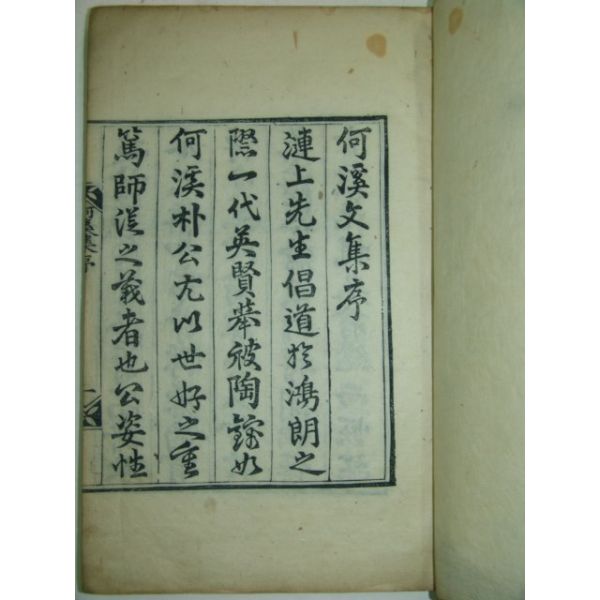 何溪文集序
漣上先生倡道於鴻朗之
際一代英賢舉被陶鎔如
何溪朴公尤以世好之重
篤師從之義者也公姿性
何溪集序
一